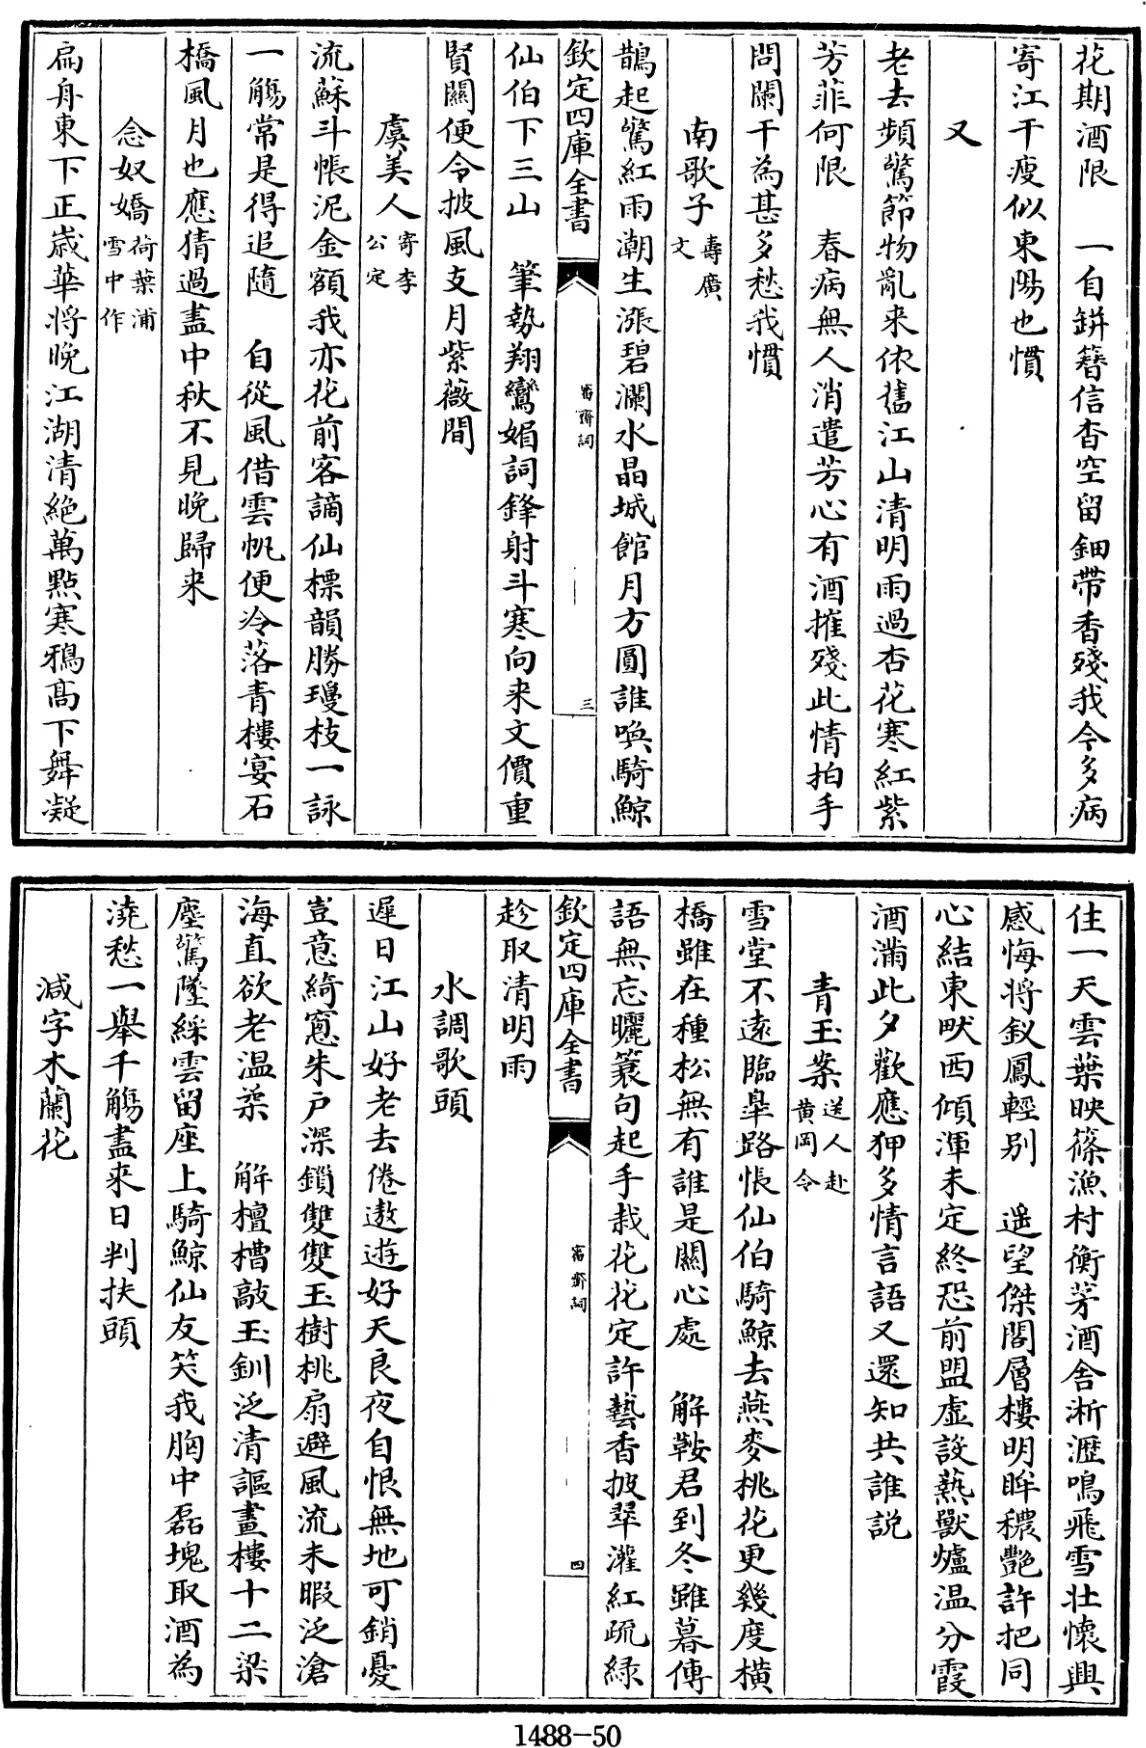 花期酒限　一自鉼簪信杳空留鈿帶香殘我今多病
寄江干瘦似東陽也慣
又
老去頻驚節物亂来依舊江山清明雨過杏花寒紅紫
芳菲何限　春病無人消遣芳心有酒摧殘此情拍手
問闌干為甚多愁我慣
南歌子壽廣文
鵲起驚紅雨潮生漲碧瀾水晶城館月方圓誰喚騎鯨
欽定四庫全書
審齋詞
三
仙伯下三山　筆勢翔鸞媚詞鋒射斗寒向来文價重
賢關便令披風支月紫薇間
虞美人寄李公定
流蘇斗帳泥金額我亦花前客謫仙標韻勝瓊枝一詠
一觴常是得追隨　自從風借雲帆便冷落青樓宴石
橋風月也應猜過盡中秋不見晚歸来
念奴嬌荷葉浦雪中作
扁舟東下正嵗華將晚江湖清絶萬點寒鴉高下舞凝
住一天雲葉映篠漁村衡茅酒舍淅瀝鳴飛雪壯懷興
感悔將釵鳳輕别　遥望傑閣層樓明眸穠艷許把同
心結東畎西傾渾未定終恐前盟虛設爇獸爐温分霞
酒滿此夕歡應狎多情言語又還知共誰説
青玉案送人赴黄岡令
雪堂不遠臨臯路悵仙伯騎鯨去燕麥桃花更幾度橫
橋雖在種松無有誰是關心處　解鞍君到冬雖暮傳
語無忘曬蓑句起手栽花花定許藝香披翠灌紅疏緑
欽定四庫全書
審齋詞
四
趁取清明雨
水調歌頭
遲日江山好老去倦遨遊好天良夜自恨無地可銷憂
豈意綺窻朱户深鎖雙雙玉樹桃扇避風流未暇泛滄
海直欲老温柔　解檀槽敲玉釧泛清謳畫樓十二梁
塵驚墜綵雲留座上騎鯨仙友笑我胸中磊塊取酒為
澆愁一舉千觴盡来日判扶頭
減字木蘭花
1488-50